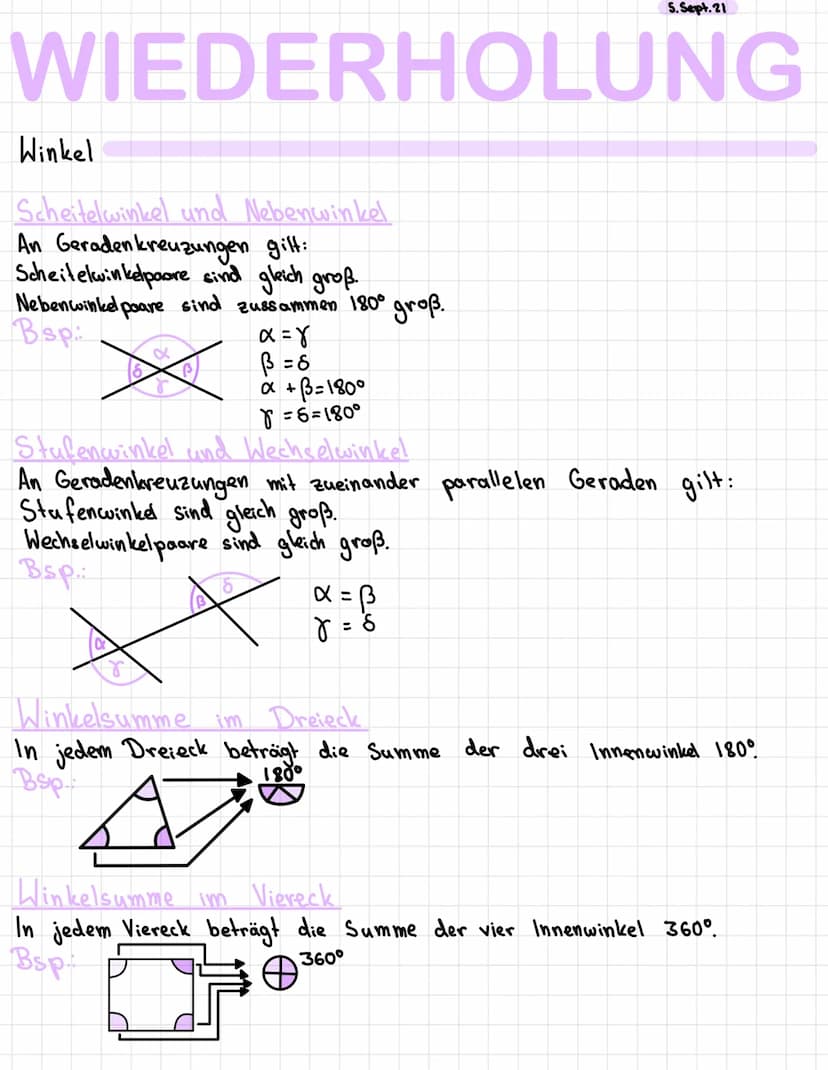 5. Sept. 21
WIEDERHOLUNG
Winkel
Scheitelwinkel und Nebenwinkel
An Geradenkreuzungen gilt:
Scheitelwinkelpaare sind gleich groß.
Nebenwinkelpaare sind zussammen 180° groß.
Bsp.:
α
δ β
γ
α = γ
β = δ
α + β = 180°
γ = δ = 180°
Stufenwinkel und Wechselwinkel
An Geradenkreuzungen mit zueinander parallelen Geraden gilt:
Stufenwinkel sind gleich groß.
Wechselwinkelpaare sind gleich groß.
Bsp.:
δ
β
α
γ
α = β
γ = δ
Winkelsumme im Dreieck
In jedem Dreieck beträgt die Summe der drei Innenwinkel 180°.
Bsp.:
180°
Winkelsumme im Viereck
In jedem Viereck beträgt die Summe der vier Innenwinkel 360°.
Bsp.:
360°